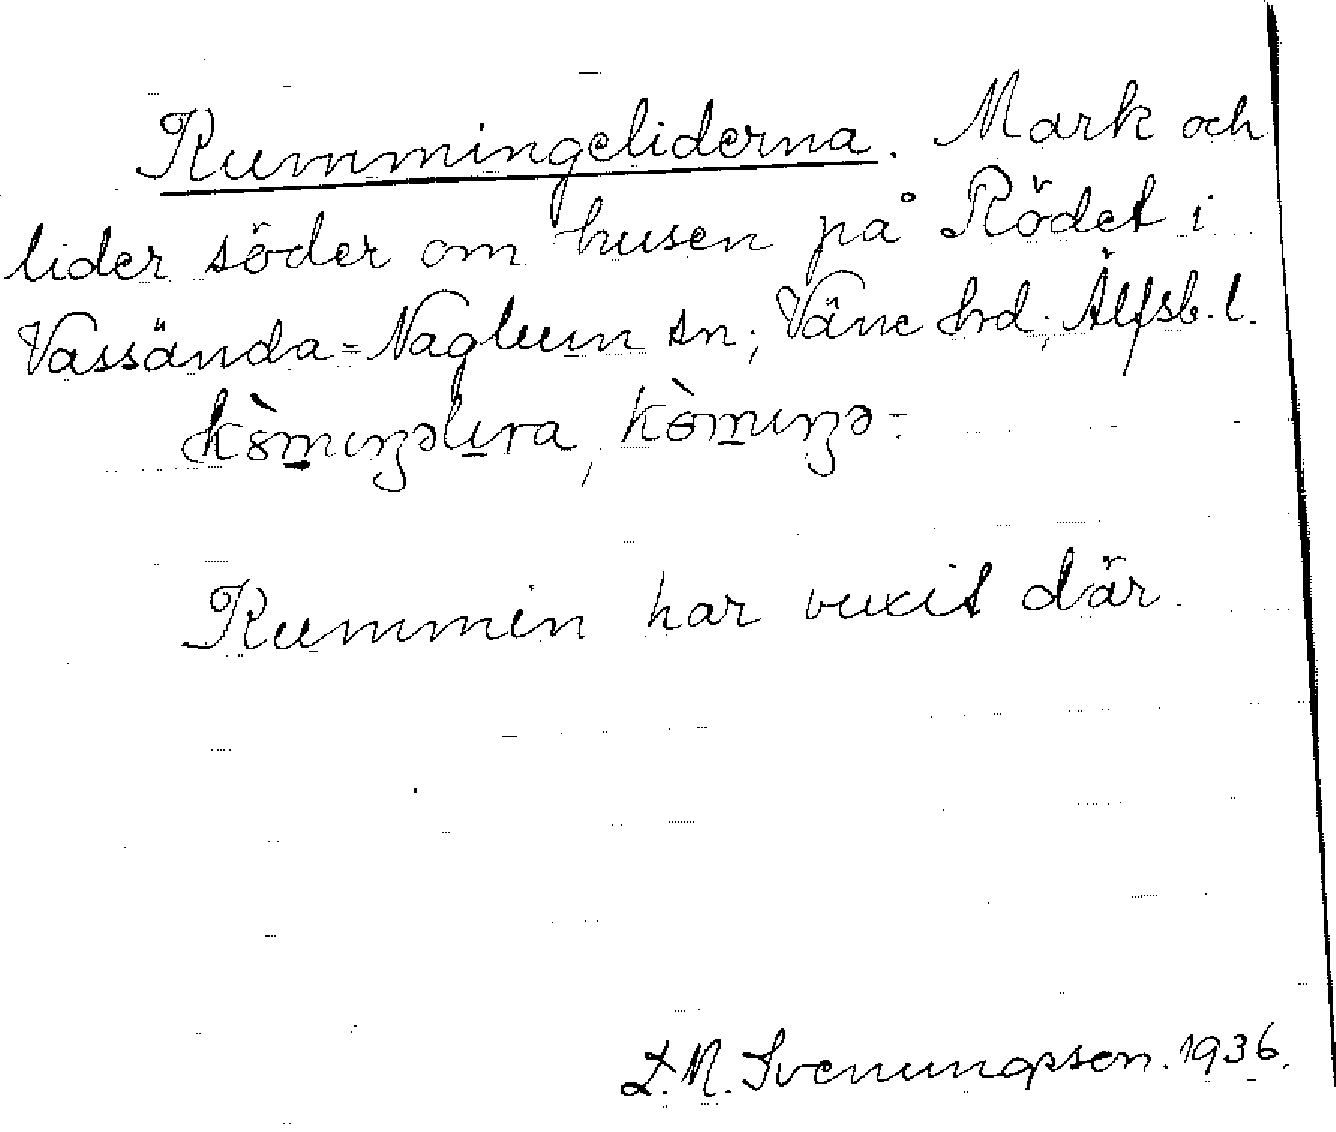 Kummingeliderna. Mark och
lider söder om husen på Rödet i
Vassända=Naglum sn; Väne hrd; Älfsb. l.
kòmıŋəlıra, kòmıŋə-
Kummin har vuxit där.
L. M. Svenungsson. 1936.